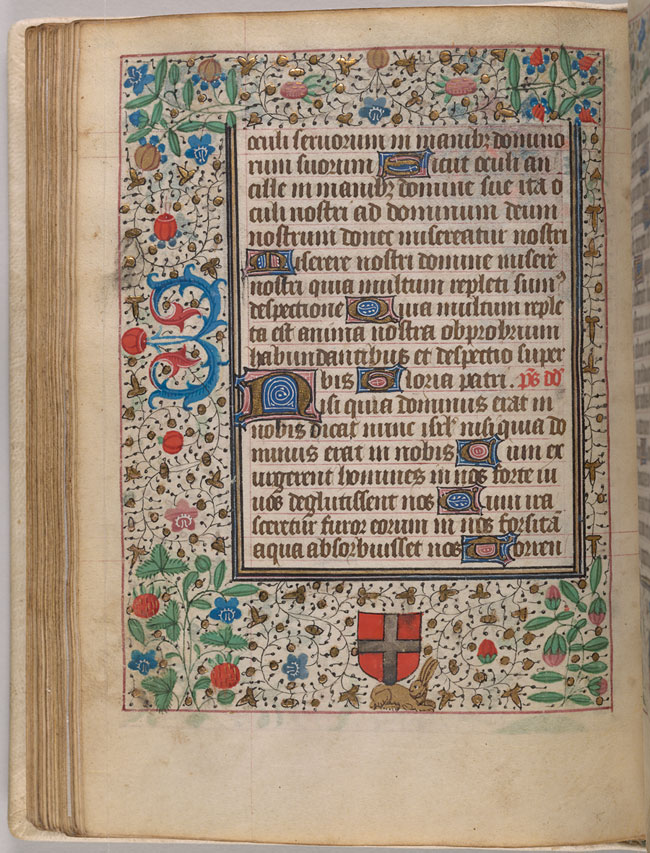 oculi seruorum in manibꝫ domino
rum suorum Sicut oculi an
cille in manibꝫ domine sue ita o
culi nostri ad dominum deum
nostrum donec misereatur nostri
Miserere nostri domine misere
nostri quia multum repleti sumꝰ
despectione Quia multum reple
ta est anima nostra obprobrium
habundantibus et despectio super
bis Gloria patri. p̄s dd̄
Nisi quia dominus erat in
nobis dicat nunc isrl̄ nisi quia do
minus erat in nobis Cum ex
urgerent homines in nos forte ui
uos deglutissent nos Cum ira
sceretur furor eorum in nos forsitā
aqua absorbuisset nos Torren